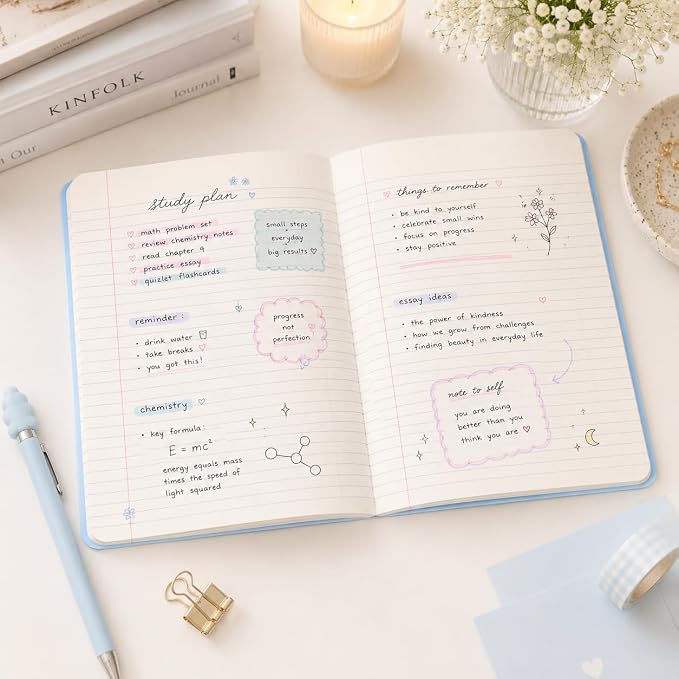 KINFOLK
Journal
n Our
study plan
math problem set
review chemistry notes
read chapter 9
practice essay
quizlet flashcards
small steps
everyday
big results
reminder:
drink water
take breaks
you got this!
progress
not
perfection
chemistry
key formula:
E = mc²
energy equals mass
times the speed of
light squared
things to remember
be kind to yourself
celebrate small wins
focus on progress
stay positive
essay ideas
the power of kindness
how we grow from challenges
finding beauty in everyday life
note to self
you are doing
better than you
think you are